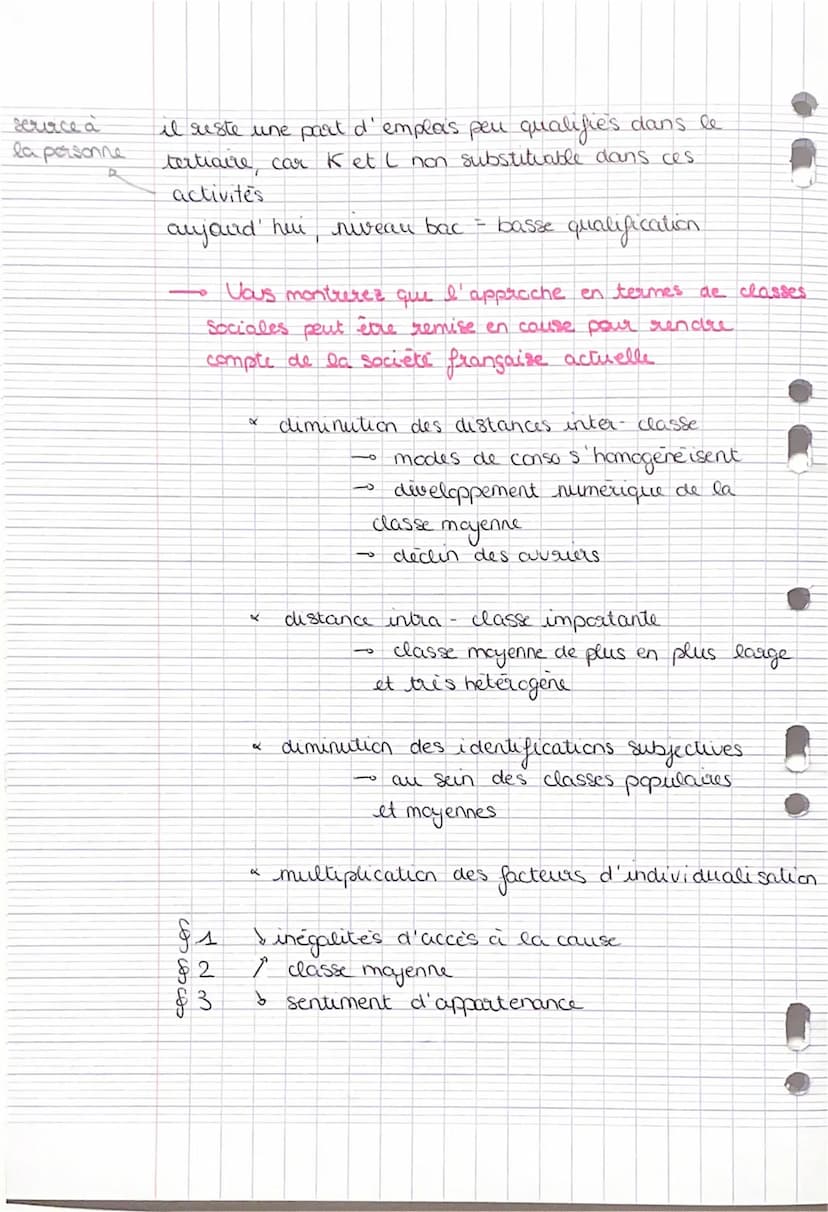 service à
la personne
il reste une part d'emplois peu qualifiés dans le
tertiaire, car K et L non substituable dans ces
activités
aujourd'hui, niveau bac = basse qualification
→ Vous montrerez que l'approche en termes de classes
sociales peut être remise en cause pour rendre
compte de la société française actuelle
* diminution des distances inter-classe
→ modes de conso s'homogénéisent
→ développement numérique de la
classe moyenne
→ déclin des ouvriers
* distance intra-classe importante
→ classe moyenne de plus en plus large
et très hétérogène
* diminution des identifications subjectives
→ au sein des classes populaires
et moyennes
* multiplication des facteurs d'individualisation
§1 ↘ inégalités d'accès à la cause
§2 ↗ classe moyenne
§3 ↘ sentiment d'appartenance